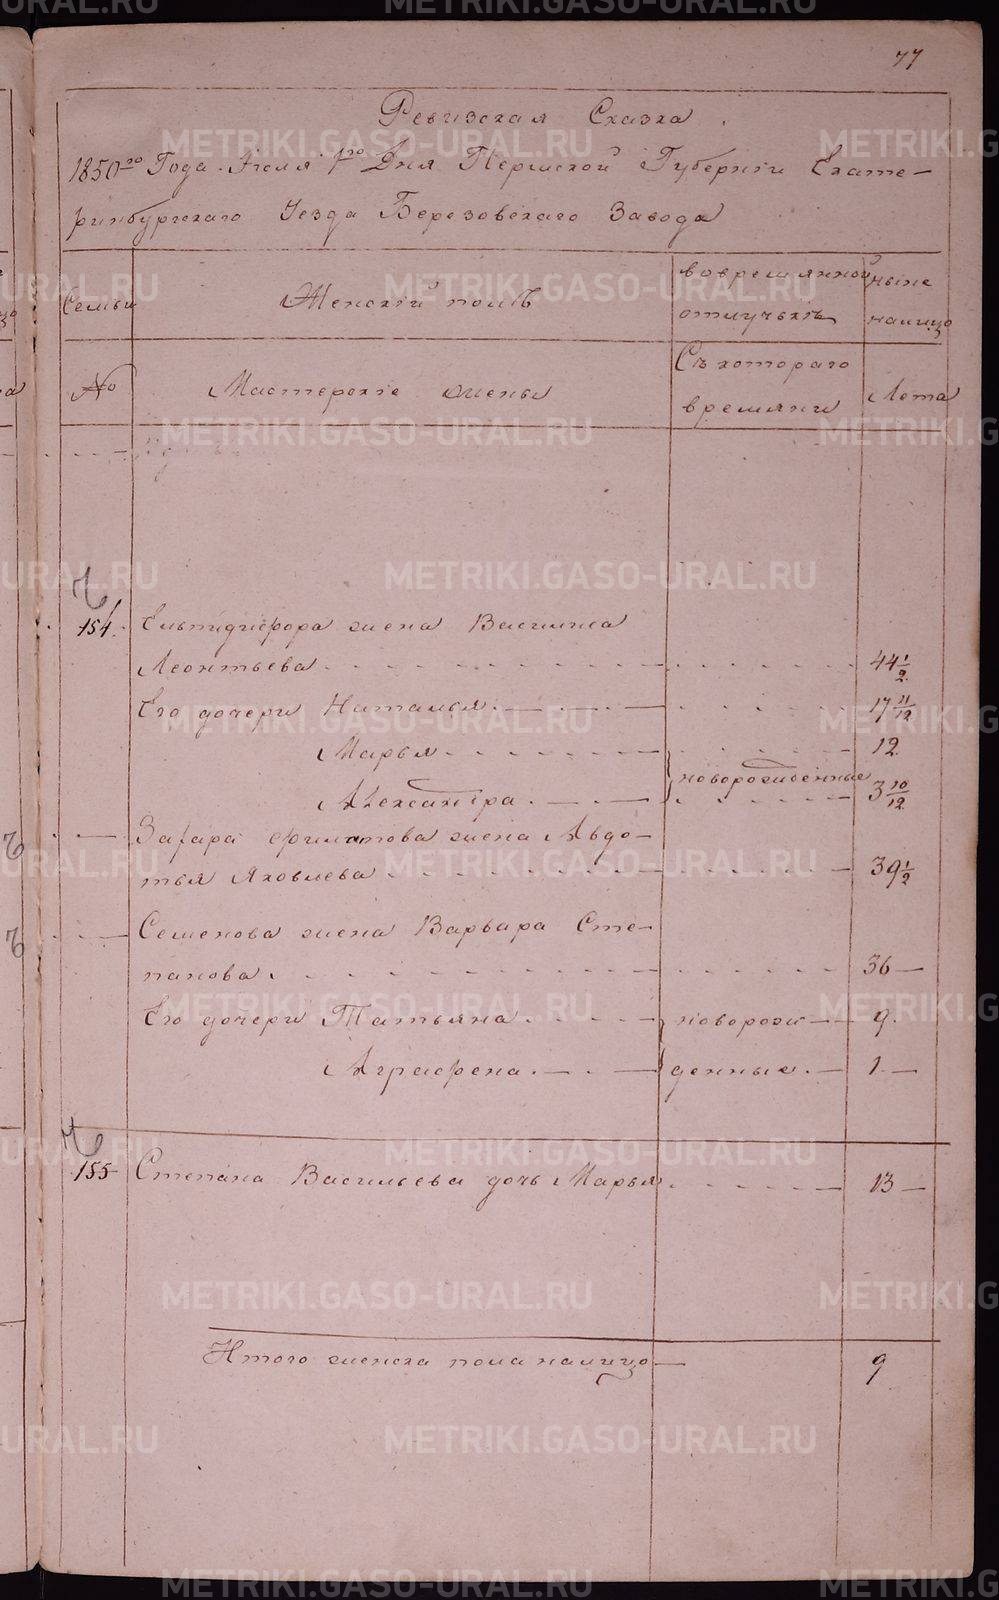 77
Ревизская Сказка.
1850го Года. Июля 1го Дня Пермской Губернiи Екате-
ринбургскаго Уезда Березовскаго Завода
Семьи
Женскiй полъ
вовремянной
отлучькѣ
ныне
налицо
No
Мастерскiе жены
Съ котораго
времяни
Лета
154.
Ельпидифора жена Василиса
Леонтьева 44 1/2
Его дочери Наталья 17 11/12
Марья 12
новорожденные
Александра 3 10/12
Захара Филатова жена Авдо-
тья Яковлева 39 1/2
Семенова жена Варвара Сте-
панова 36
Его дочери Татьяна новорож- 9.
Аграфена денные 1
155
Степана Васильева дочь Марья 13
Итого женска пола налицо 9
METRIKI.GASO-URAL.RU